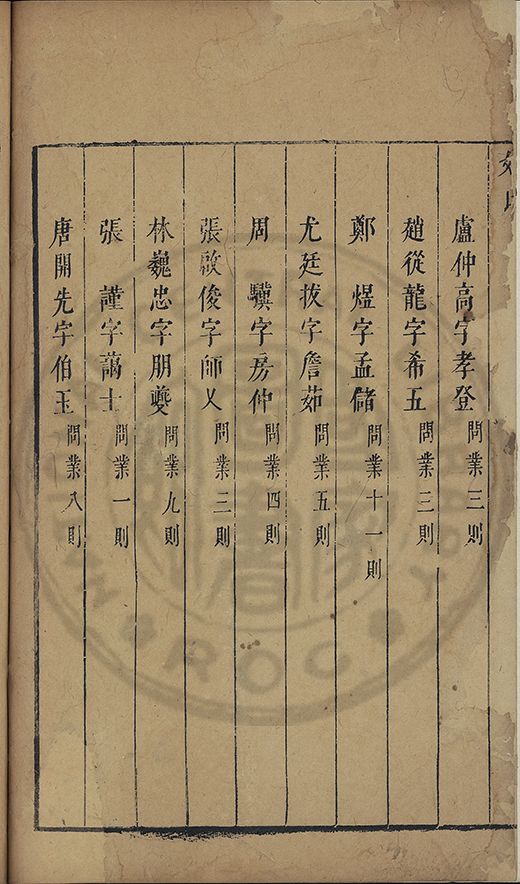 盧仲高字孝登問業三則
趙從龍字希五問業三則
鄭煜字孟儲問業十一則
尤廷拔字詹茹問業五則
周驥字房仲問業四則
張啟俊字師乂問業三則
林巍忠字朋夔問業九則
張謹字藹士問業一則
唐開先字伯玉問業八則